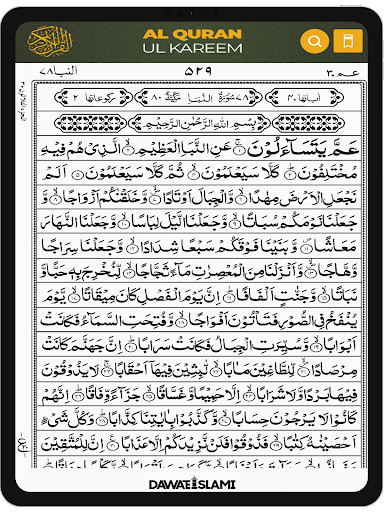 AL QURAN
UL KAREEM
عم ٣٠
٥٢٩
النبا ٧٨
اٰیاتها ٤٠
٧٨ سُوْرَةُ النَّبَا مَكِّیَّةٌ ٨٠
ركوعاتها ٢
بِسْمِ اللّٰهِ الرَّحْمٰنِ الرَّحِیْمِ
عَمَّ یَتَسَآءَلُوْنَۚ۝۱ عَنِ النَّبَاِ الْعَظِیْمِۙ۝۲ الَّذِیْ هُمْ فِیْهِ
مُخْتَلِفُوْنَؕ۝۳ كَلَّا سَیَعْلَمُوْنَۙ۝۴ ثُمَّ كَلَّا سَیَعْلَمُوْنَ۝۵ اَلَمْ
نَجْعَلِ الْاَرْضَ مِهٰدًاۙ۝۶ وَّ الْجِبَالَ اَوْتَادًاﭪ۝۷ وَّ خَلَقْنٰكُمْ اَزْوَاجًاۙ۝۸ وَّ
جَعَلْنَا نَوْمَكُمْ سُبَاتًاۙ۝۹ وَّ جَعَلْنَا الَّیْلَ لِبَاسًاۙ۝۱۰ وَّ جَعَلْنَا النَّهَارَ
مَعَاشًا۪۝۱۱ وَ بَنَیْنَا فَوْقَكُمْ سَبْعًا شِدَادًاۙ۝۱۲ وَّ جَعَلْنَا سِرَاجًا
وَّهَّاجًاﭪ۝۱۳ وَّ اَنْزَلْنَا مِنَ الْمُعْصِرٰتِ مَآءً ثَجَّاجًاۙ۝۱۴ لِّنُخْرِ جَ بِهٖ حَبًّا وَّ
نَبَاتًاۙ۝۱۵ وَّ جَنّٰتٍ اَلْفَافًاؕ۝۱۶ اِنَّ یَوْمَ الْفَصْلِ كَانَ مِیْقَاتًاۙ۝۱۷ یَّوْمَ
یُنْفَخُ فِی الصُّوْرِ فَتَاْتُوْنَ اَفْوَاجًاۙ۝۱۸ وَّ فُتِحَتِ السَّمَآءُ فَكَانَتْ
اَبْوَابًاۙ۝۱۹ وَّ سُیِّرَتِ الْجِبَالُ فَكَانَتْ سَرَابًاؕ۝۲۰ اِنَّ جَهَنَّمَ كَانَتْ
مِرْصَادًاﭪ۝۲۱ لِّلطَّاغِیْنَ مَاٰبًاۙ۝۲۲ لّٰبِثِیْنَ فِیْهَاۤ اَحْقَابًاۚ۝۲۳ لَا یَذُوْقُوْنَ
فِیْهَا بَرْدًا وَّ لَا شَرَابًاۙ۝۲۴ اِلَّا حَمِیْمًا وَّ غَسَّاقًاۙ۝۲۵ جَزَآءً وِّفَاقًاؕ۝۲۶ اِنَّهُمْ
كَانُوْا لَا یَرْجُوْنَ حِسَابًاۙ۝۲۷ وَّ كَذَّبُوْا بِاٰیٰتِنَا كِذَّابًاؕ۝۲۸ وَ كُلَّ شَیْءٍ
اَحْصَیْنٰهُ كِتٰبًاۙ۝۲۹ فَذُوْقُوْا فَلَنْ نَّزِیْدَكُمْ اِلَّا عَذَابًا۠۝۳۰ اِنَّ لِلْمُتَّقِیْنَ
DAWATEISLAMI